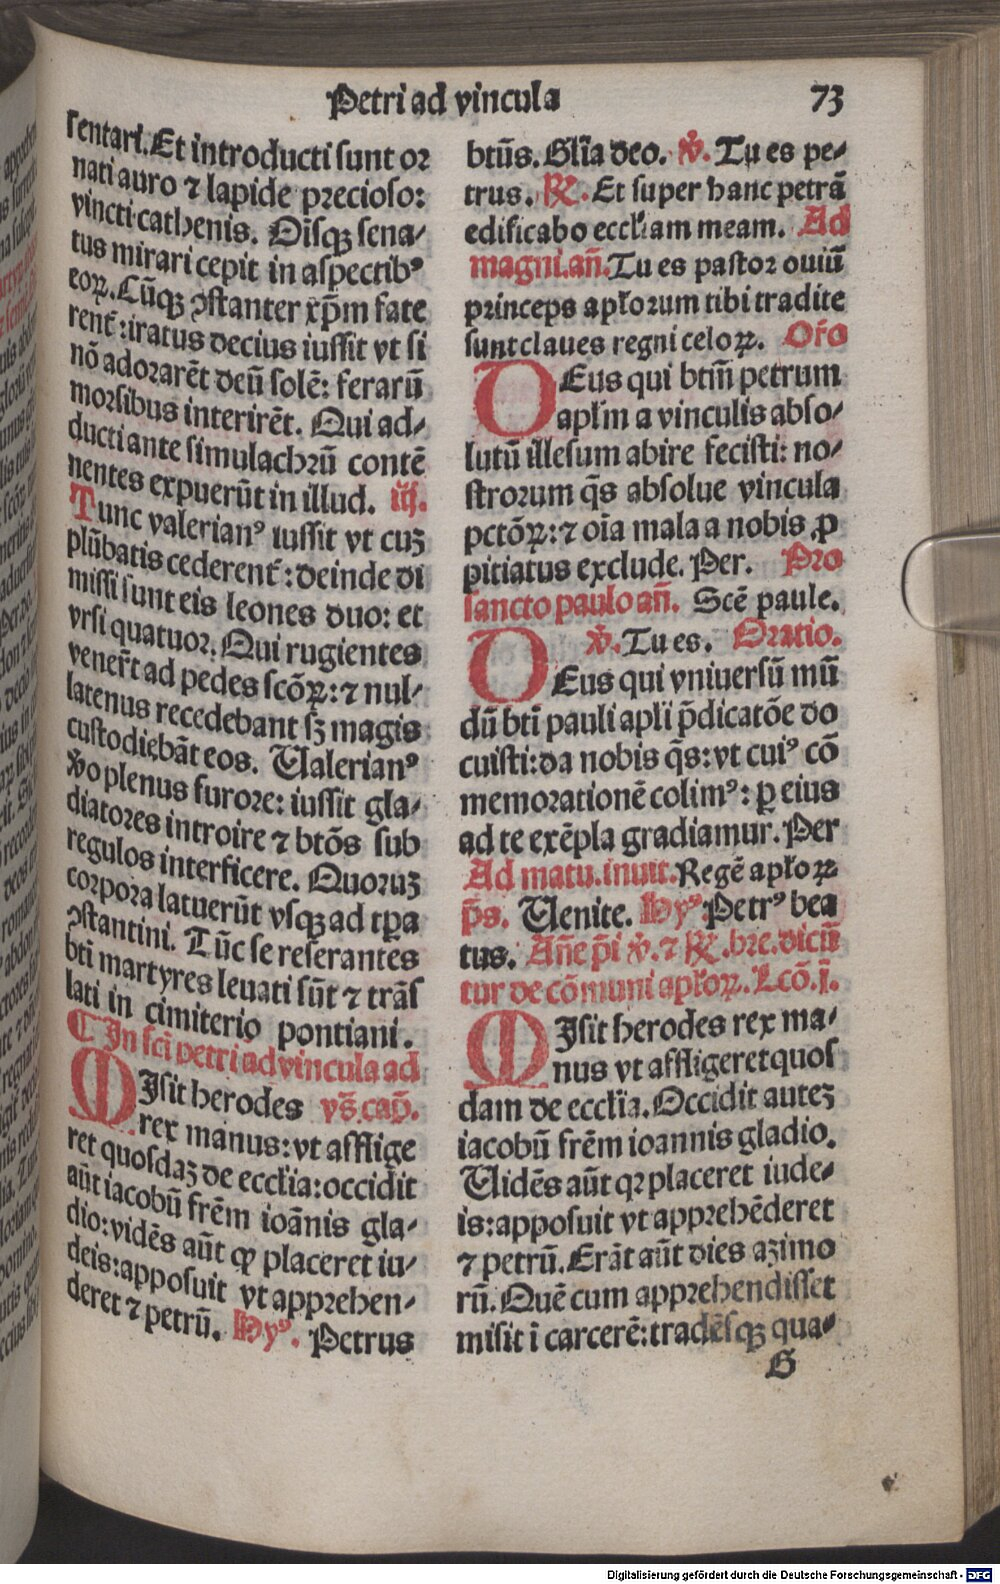 Petri ad vincula
73
sentari. Et introducti sunt or
nati auro ⁊ lapide precioso:
vincti cathenis. Oīsqꝫ sena-
tus mirari cepit in aspectibꝰ
eoꝝ. Cūqꝫ ꝯstanter xp̄m fate
rent᷑: iratus decius iussit vt si
nō adorarēt deū solē: ferarū
morsibus interirēt. Qui ad-
ducti ante simulachrū contē
nentes expuerūt in illud. iij.
Tunc valerianꝰ iussit vt cuꝫ
plūbatis cederent᷑: deinde di
missi sunt eis leones duo: et
vrsi quatuor. Qui rugientes
venerūt ad pedes scōꝝ: ⁊ nul-
latenus recedebant sꝫ magis
custodiebāt eos. Ualerianꝰ
v̊o plenus furore: iussit gla-
diatores introire ⁊ btōs sub
regulos interficere. Quoruꝫ
corpora latuerūt vsqꝫ ad tꝑa
ꝯstantini. Tūc se reserantes
bti martyres leuati sūt ⁊ trās
lati in cimiterio pontiani.
¶ In sci petri ad vincula ad
MIsit herodes vs̄. cap̄.
rex manus: vt afflige
ret quosdaꝫ de ecclia: occidit
aūt iacobū frēm ioānis gla-
dio: vidēs aūt ꝙ placeret iu-
deis: apposuit vt apprehen-
deret ⁊ petrū. Hyꝰ. Petrus
btūs. Glīa deo. v̊. Tu es pe-
trus. ℟. Et super hanc petrā
edificabo eccliam meam. Ad
magni. an̄. Tu es pastor ouiū
princeps apłorum tibi tradite
sunt claues regni celoꝝ. Oro
DEus qui btm̄ petrum
aplm̄ a vinculis abso-
lutū illesum abire fecisti: no-
strorum q̄s absolue vincula
pctōꝝ: ⁊ oīa mala a nobis ꝓ
pitiatus exclude. Per. Pro
sancto paulo an̄. Scē paule.
v̊. Tu es. Oratio.
DEus qui vniuersū mū
dū bti pauli apli p̄dicatōe do
cuisti: da nobis q̄s: vt cuiꝰ cō
memorationē colimꝰ: ꝑ eius
ad te exēpla gradiamur. Per
Ad matu. inuit. Regē apłoꝝ
p̄s. Uenite. Hyꝰ. Petrꝰ bea
tus. Añe p̄i v̊. ⁊ ℟. bre. dicūt
tur de cōmuni apłoꝝ. Lcō. j.
MIsit herodes rex ma-
nus vt affligeret quos
dam de ecclia. Occidit auteꝫ
iacobū frēm ioannis gladio.
Uidēs aūt qꝛ placeret iude-
is: apposuit vt apprehēderet
⁊ petrū. Erāt aūt dies azimo
rū. Quē cum apprehendisset
misit ī carcerē: tradēsqꝫ qua-
G
Digitalisierung gefördert durch die Deutsche Forschungsgemeinschaft - DFG